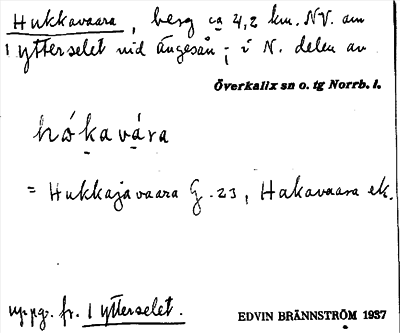 Hukkavaara, berg ca 4,2 km. NV. om
Ytterselet vid Ängesån; i N. delen av
Överkalix sn o. tg Norrb. l.
hókavára
= Hukkajavaara G. 23, Hakavaara ek.
uppg. fr. Ytterselet.
EDVIN BRÄNNSTRÖM 1937